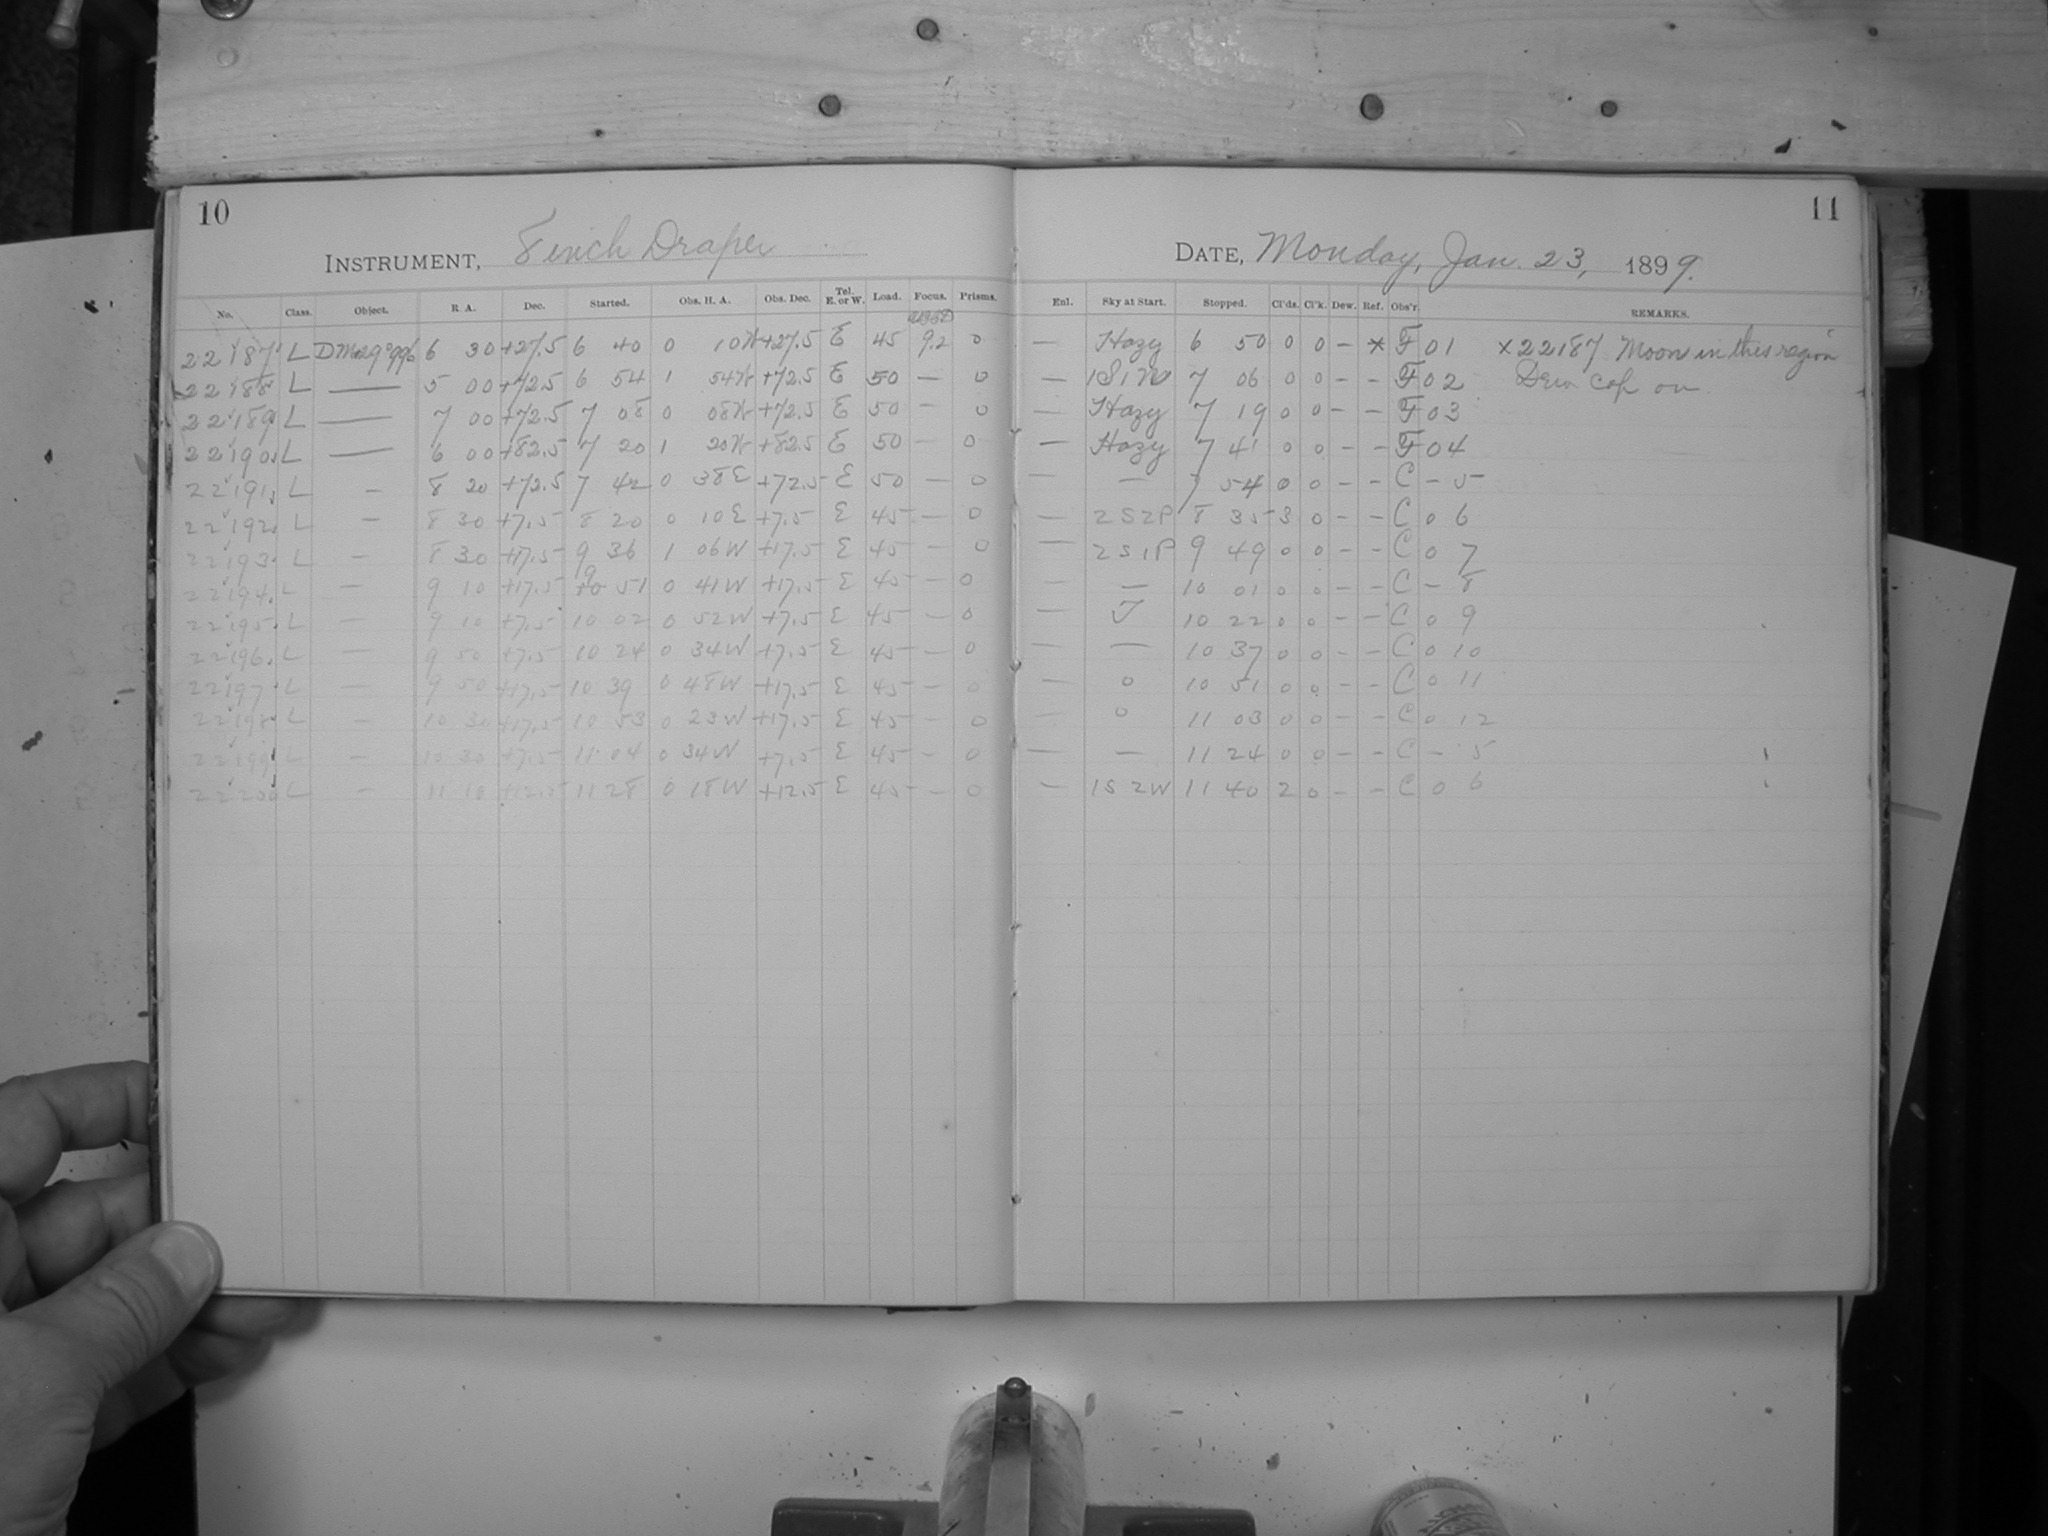 10
INSTRUMENT, 8 inch Draper
No. Class. Object. R. A. Dec. Started. Obs. H. A. Obs. Dec. Tel. E. or W. Load. Focus. Prisms.
22187 L 6 30 +27.5 6 40 0 10W +27.5 E 45 9.2 0
22188 L — 5 00 +72.5 6 54 1 54W +72.5 E 50 — 0
22189 L — 7 00 +72.5 7 08 0 08W +72.5 E 50 — 0
22190 L — 6 00 +82.5 7 20 1 20W +82.5 E 50 — 0
22191 L — 8 20 +72.5 7 42 0 38E +72.5 E 50 — 0
22192 L — 8 30 +7.5 8 20 0 10E +7.5 E 45 — 0
22193 L — 8 30 +17.5 9 36 1 06W +17.5 E 45 — 0
22194 L — 9 10 +17.5 9 51 0 41W +17.5 E 45 — 0
22195 L — 9 10 +7.5 10 02 0 52W +7.5 E 45 — 0
22196 L — 9 50 +7.5 10 24 0 34W +7.5 E 45 — 0
22197 L — 9 50 +17.5 10 39 0 48W +17.5 E 45 — 0
22198 L — 10 30 +17.5 10 53 0 23W +17.5 E 45 — 0
22199 L — 10 30 +7.5 11 04 0 34W +7.5 E 45 — 0
22200 L — 11 10 +12.5 11 28 0 18W +12.5 E 45 — 0
11
DATE, Monday, Jan. 23, 1899.
Enl. Sky at Start. Stopped. Cl'ds. Cl'k. Dew. Ref. Obs'r. REMARKS.
— Hazy 6 50 0 0 - * F 0 1 ×22187 Moon in this region
— 1S1W 7 06 0 0 - - F 0 2 Dew cap on
— Hazy 7 19 0 0 - - F 0 3
— Hazy 7 41 0 0 - - F 0 4
— — 7 54 0 0 - - C - 5
— 2S2P 8 35 3 0 - - C 0 6
— 2S1P 9 49 0 0 - - C 0 7
— — 10 01 0 0 - - C - 8
— 10 22 0 0 - - C 0 9
— — 10 37 0 0 - - C 0 10
— 0 10 51 0 0 - - C 0 11
— 0 11 03 0 0 - - C 0 12
— — 11 24 0 0 - - C - 5
— 1S2W 11 40 2 0 - - C 0 6